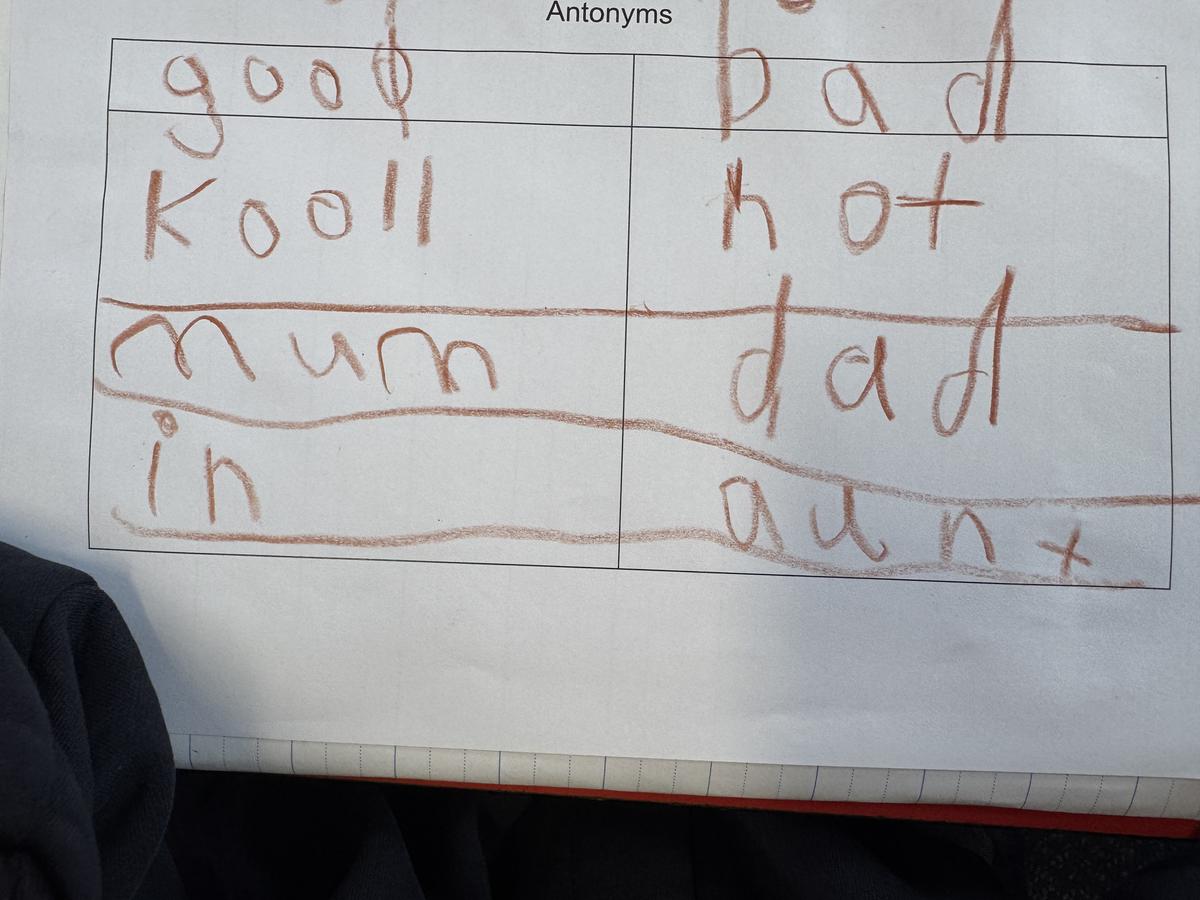 Antonyms
good bad
Kooll hot
mum dad
in aunt